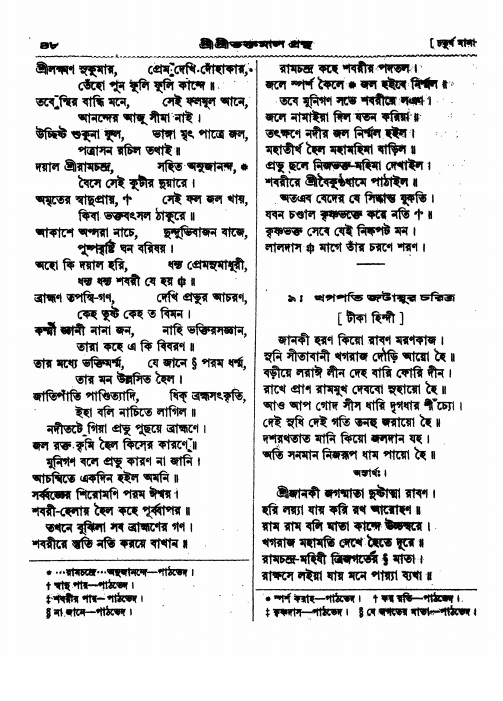 ৪৮
শ্রীশ্রীভক্তমাল গ্রন্থ
[ চতুর্থ মালা
শ্রীলক্ষ্মণ সুকুমার, প্রেম দেখি দোঁহাকার,*
তেঁহো পুন ফুলি ফুলি কান্দে ॥
তবে স্থির বান্ধি মনে, সেই ফলমূল আনে,
আনন্দের আজু সীমা নাই ।
উচ্ছিষ্ট শুকুনা ফুল, ভাঙ্গা মৃৎ পাত্রে জল,
পত্রাসন রচিল তথাই ॥
দয়াল শ্রীরামচন্দ্র, সহিত অনুজানন্দ, *
বৈসে সেই কুটীর দুয়ারে ।
অমৃতের স্বাদুপ্রায়, † সেই ফল জল খায়,
কিবা ভক্তবৎসল ঠাকুরে ॥
আকাশে অপ্সরা নাচে, দুন্দুভিবাজন বাজে,
পুষ্পবৃষ্টি ঘন বরিষয় ।
অহো কি দয়াল হরি, ধন্য প্রেমসুমাধুরী,
ধন্য ধন্য শবরী যে হয় ‡ ॥
ব্রাহ্মণ তপস্বি-গণ, দেখি প্রভুর আচরণ,
কেহ তুষ্ট কেহ ত বিমন ।
কর্ম্মী জ্ঞানী নানা জন, নাহি ভক্তিরসজ্ঞান,
তারা কহে এ কি বিবরণ ॥
তার মধ্যে ভক্তিমর্ম্ম, যে জানে § পরম ধর্ম্ম,
তার মন উল্লসিত হৈল ।
জাতিপাঁতি পাণ্ডিত্যাদি, ধিক্ ব্রহ্মসংকৃতি,
ইহা বলি নাচিতে লাগিল ॥
নদীতটে গিয়া প্রভু পুছয়ে ব্রাহ্মণে ।
জল রক্ত কৃমি হৈল কিসের কারণে ॥
মুনিগণ বলে প্রভু কারণ না জানি ।
আচম্বিতে একদিন হইল অমনি ॥
সর্ব্বজ্ঞের শিরোমণি পরম ঈশ্বর ।
শবরী-হেলায় হৈল কহে পূর্ব্বাপর ॥
তখনে বুঝিলা সব ব্রাহ্মণের গণ ।
শবরীরে স্তুতি নতি করয়ে বাখান ॥
* ···রামচন্দ্রে···অনুজানন্দে—পাঠভেদ ।
† স্বাদু পায়—পাঠভেদ ।
‡ শবরীর পায়—পাঠভেদ ।
§ না জানে—পাঠভেদ ।
রামচন্দ্র কহে শবরীর পদতল ।
জলে স্পর্শ কৈলে * জল হইবে নির্ম্মল ॥
তবে মুনিগণ সভে শবরীরে লঞা ।
জলে নামাইয়া দিল যতন করিয়া ॥
তৎক্ষণে নদীর জল নির্ম্মল হইল ।
মহাতীর্থ হৈল মহামহিমা বাড়িল ॥
প্রভু ছলে নিজভক্ত-মহিমা দেখাইল ।
শবরীরে শ্রীবৈকুণ্ঠধামে পাঠাইল ॥
অতএব বেদের যে সিদ্ধান্ত যুকতি ।
যবন চণ্ডাল কৃষ্ণভক্তে করে নতি † ॥
কৃষ্ণভক্ত সেবে যেই নিষ্কপট মন ।
লালদাস ‡ মাগে তাঁর চরণে শরণ ।
৯ঃ খগপতি জটায়ুর চরিত্র
[ টীকা হিন্দী ]
জানকী হরণ কিয়ো রাবণ মরণকাজ ।
সুনি সীতাবানী খগরাজ দৌড়ি আয়ো হৈ ॥
বড়ীয়ে লরাঈ লীন দেহ বারি ফেরি দীন ।
রাখে প্রাণ রামমুখ দেববো সুহায়ো হৈ ॥
আও আপ গোদ সীস ধারি দৃগধার সীঁচ্যো ।
দেই সুধি দেই গতি তনহু জরায়ো হৈ ॥
দশরথতাত মানি কিয়ো জলদান যহ ।
অতি সনমান নিজরূপ ধাম পায়ো হৈ ॥
অস্যার্থঃ ।
শ্রীজানকী জগন্মাতা দুষ্টাত্মা রাবণ ।
হরি লয়্যা যায় করি রথ আরোহণ ॥
রাম রাম বলি মাতা কান্দে উচ্চস্বরে ।
খগরাজ মহামতি দেখে হৈতে দূরে ॥
রামচন্দ্র-মহিষী ত্রিজগতের § মাতা ।
রাক্ষসে লইয়া যায় মনে পায়্যা ব্যথা ॥
* স্পর্শ করাহ—পাঠভেদ । † কয় রতি—পাঠভেদ ।
‡ কৃষ্ণদাস—পাঠভেদ । § যে জগতের মাতা—পাঠভেদ ।